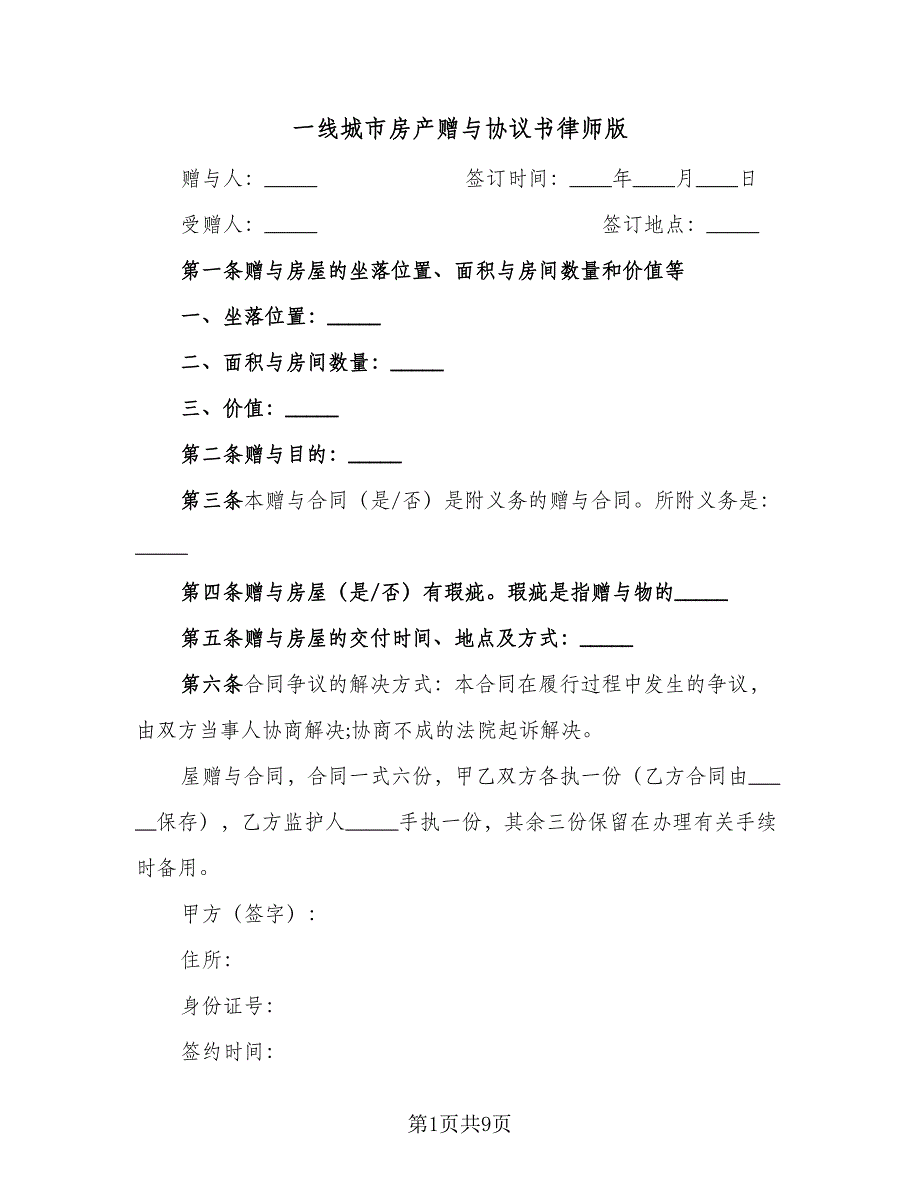 一线城市房产赠与协议书律师版
赠与人：_____ 签订时间：____年____月____日
受赠人：_____ 签订地点：_____
第一条赠与房屋的坐落位置、面积与房间数量和价值等
一、坐落位置：_____
二、面积与房间数量：_____
三、价值：_____
第二条赠与目的：_____
第三条本赠与合同（是/否）是附义务的赠与合同。所附义务是：
_____
第四条赠与房屋（是/否）有瑕疵。瑕疵是指赠与物的_____
第五条赠与房屋的交付时间、地点及方式：_____
第六条合同争议的解决方式：本合同在履行过程中发生的争议，
由双方当事人协商解决;协商不成的法院起诉解决。
屋赠与合同，合同一式六份，甲乙双方各执一份（乙方合同由___
__保存），乙方监护人_____手执一份，其余三份保留在办理有关手续
时备用。
甲方（签字）：
住所：
身份证号：
签约时间：
第1页共9页